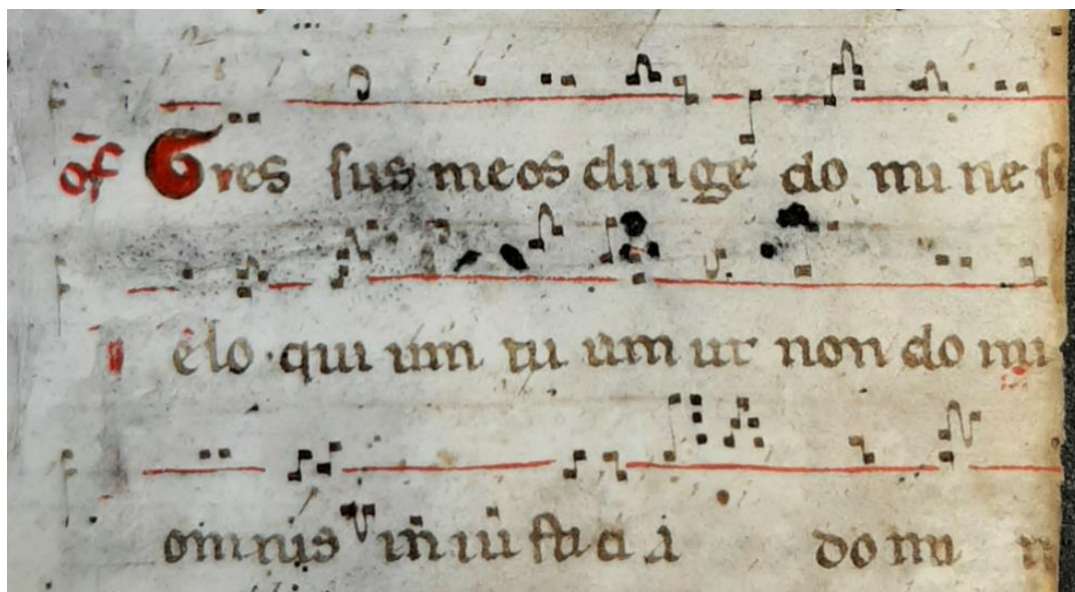 of Gres sus meos dirige do mi ne se
i elo qui um tu um ut non do mi
omnis in iu sti ci a do mi n